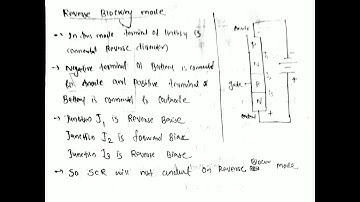 Reverse Blocking mode
→ In this mode terminal of Battery is
connected Reverse direction)
→ Negative terminal of Battery is connected
to Anode and positive terminal of
Battery is connected to cathode
→ Junction J1 is Reverse Biase
Junction J2 is forward Biase
Junction J3 is Reverse Biase
→ So SCR will not conduct on Reverse Blocking mode
Anode
P
N
Gate
P
N